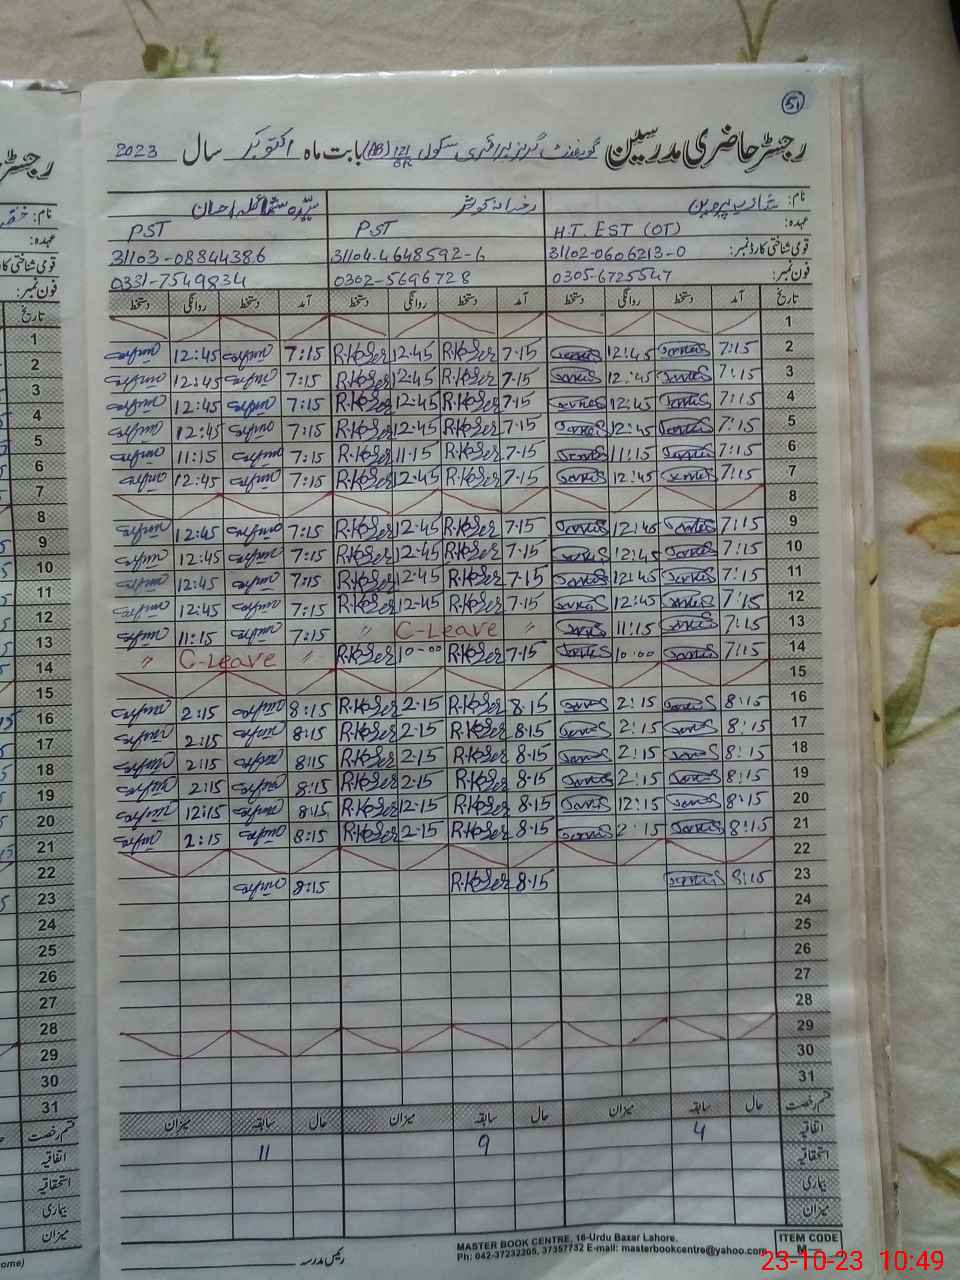 51
رجسٹر حاضری مدرسین گورنمنٹ گرلز پرائمری سکول 121/DR (AB) بابت ماہ اکتوبر سال 2023
نام: شازیہ پروین رخسانہ کوثر سیدہ شمائلہ احسان
عہدہ: H.T. EST (OT) PST PST
قومی شناختی کارڈ نمبر: 31102-0606213-0 31104-4648592-6 31103-08844386
فون نمبر: 0305-6725547 0302-5696728 0331-7549834
تاریخ آمد دستخط روانگی دستخط آمد دستخط روانگی دستخط آمد دستخط روانگی دستخط
1
2 7:15 12:45 7-15 R.Koser 12-45 R.Koser 7:15 12:45
3 7:15 12:45 7-15 R.Koser 12-45 R.Koser 7:15 12:45
4 7:15 12:45 7-15 R.Koser 12-45 R.Koser 7:15 12:45
5 7:15 12:45 7-15 R.Koser 12-45 R.Koser 7:15 12:45
6 7:15 11:15 7-15 R.Koser 11-15 R.Koser 7:15 11:15
7 7:15 12:45 7-15 R.Koser 12-45 R.Koser 7:15 12:45
8
9 7:15 12:45 7-15 R.Koser 12-45 R.Koser 7:15 12:45
10 7:15 12:45 7-15 R.Koser 12-45 R.Koser 7:15 12:45
11 7:15 12:45 7-15 R.Koser 12-45 R.Koser 7:15 12:45
12 7:15 12:45 7-15 R.Koser 12-45 R.Koser 7:15 12:45
13 7:15 11:15 " C-Leave " 7:15 11:15
14 7:15 10:00 7-15 R.Koser 10-00 R.Koser " C-Leave "
15
16 8:15 2:15 8-15 R.Koser 2-15 R.Koser 8:15 2:15
17 8:15 2:15 8-15 R.Koser 2-15 R.Koser 8:15 2:15
18 8:15 2:15 8-15 R.Koser 2-15 R.Koser 8:15 2:15
19 8:15 2:15 8-15 R.Koser 2-15 R.Koser 8:15 2:15
20 8:15 12:15 8-15 R.Koser 12-15 R.Koser 8:15 12:15
21 8:15 2:15 8-15 R.Koser 2-15 R.Koser 8:15 2:15
22
23 8:15 8-15 R.Koser 8:15
24
25
26
27
28
29
30
31
قسم رخصت حال سابقہ میزان حال سابقہ میزان حال سابقہ میزان
اتفاقیہ 4 9 11
استحقاقیہ
بیماری
میزان
رئیس مدرسہ
MASTER BOOK CENTRE, 16-Urdu Bazar Lahore.
Ph: 042-37232305, 37357732 E-mail: masterbookcentre@yahoo.com
ITEM CODE
M
23-10-23 10:49